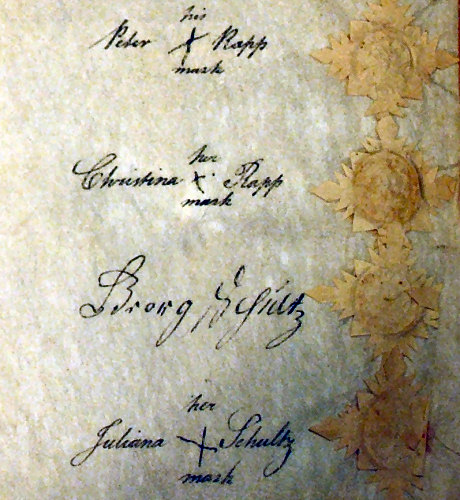 his
Peter X Rapp
mark
her
Christina X Rapp
mark
Georg Schultz
her
Juliana X Schultz
mark